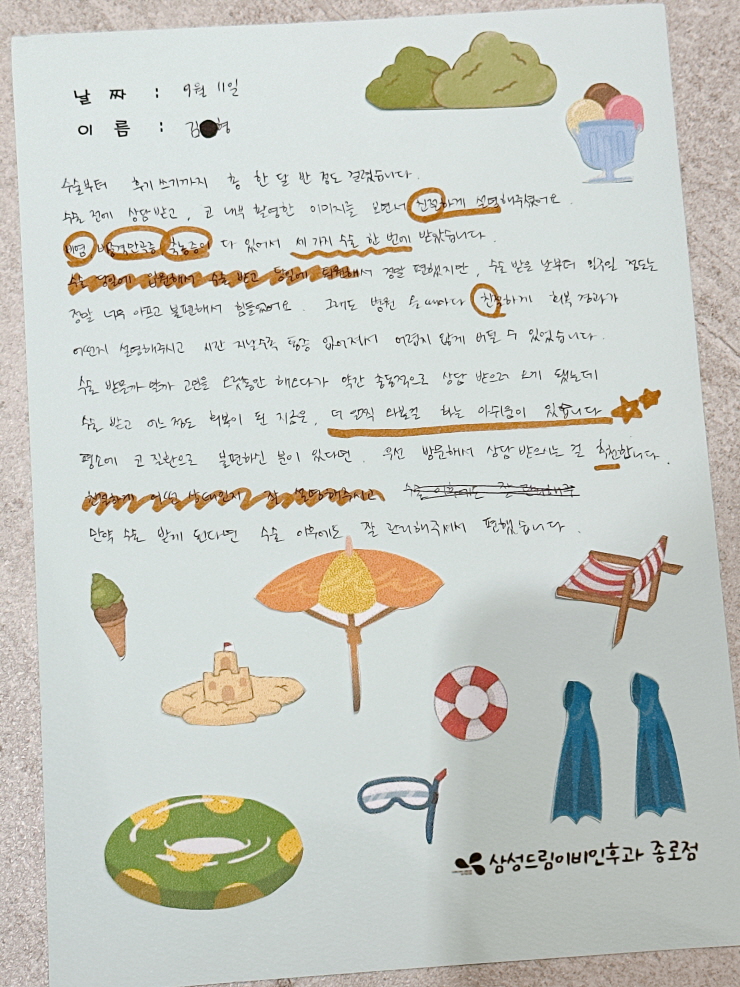 날 짜 : 9월 11일
이 름 : 김 형
수술부터 후기 쓰기까지 총 한 달 반 정도 걸렸습니다.
수술 전에 상담받고, 코 내부 촬영한 이미지를 보면서 친절하게 설명해주셨어요.
비염 비중격만곡증 축농증이 다 있어서 세 가지 수술 한 번에 받았습니다.
수술 당일에 입원해서 수술 받고 당일에 퇴원해서 정말 편했지만, 수술 받은 날부터 일주일 정도는
정말 너무 아프고 불편해서 힘들었어요. 그래도 병원 올 때마다 친절하게 회복 경과가
어떤지 설명해주시고 시간 지날수록 통증 없어져서 어렵지 않게 버틸 수 있었습니다.
수술 받을까 말까 고민을 오랫동안 해오다가 약간 충동적으로 상담 받으러 오게 됐는데
수술 받고 어느 정도 회복이 된 지금은, 더 일찍 와볼걸 하는 아쉬움이 있습니다
평소에 코 질환으로 불편하신 분이 있다면, 우선 방문해서 상담 받아보는 걸 추천합니다.
현재 어떤 상태인지 잘 설명해주시고 수술 이후에는 잘 관리해주
만약 수술 받게 된다면 수술 이후에도 잘 관리해주셔서 편했습니다.
삼성드림이비인후과 종로점